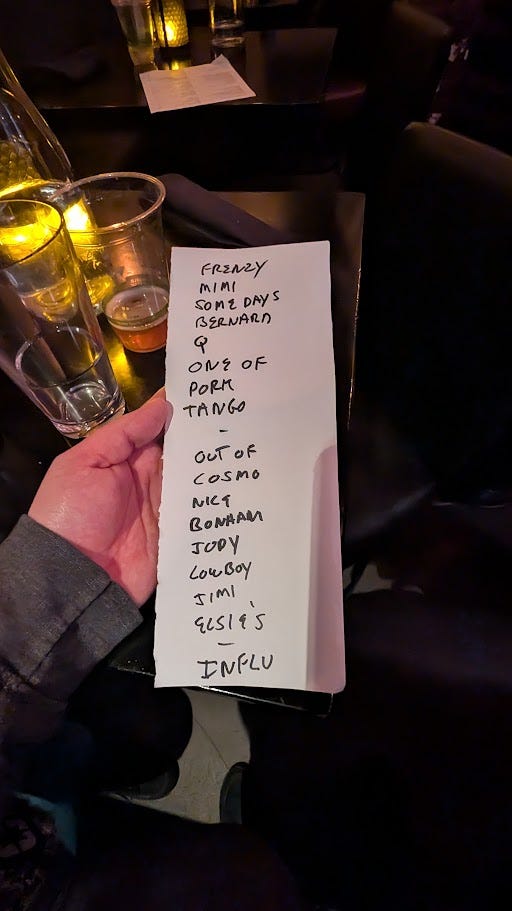 FRENZY
MIMI
SOME DAYS
BERNARD
Q
ONE OF
PORK
TANGO
-
OUT OF
COSMO
NICE
BONHAM
JODY
LOWBOY
JIMI
ELSIE'S
-
INFLU